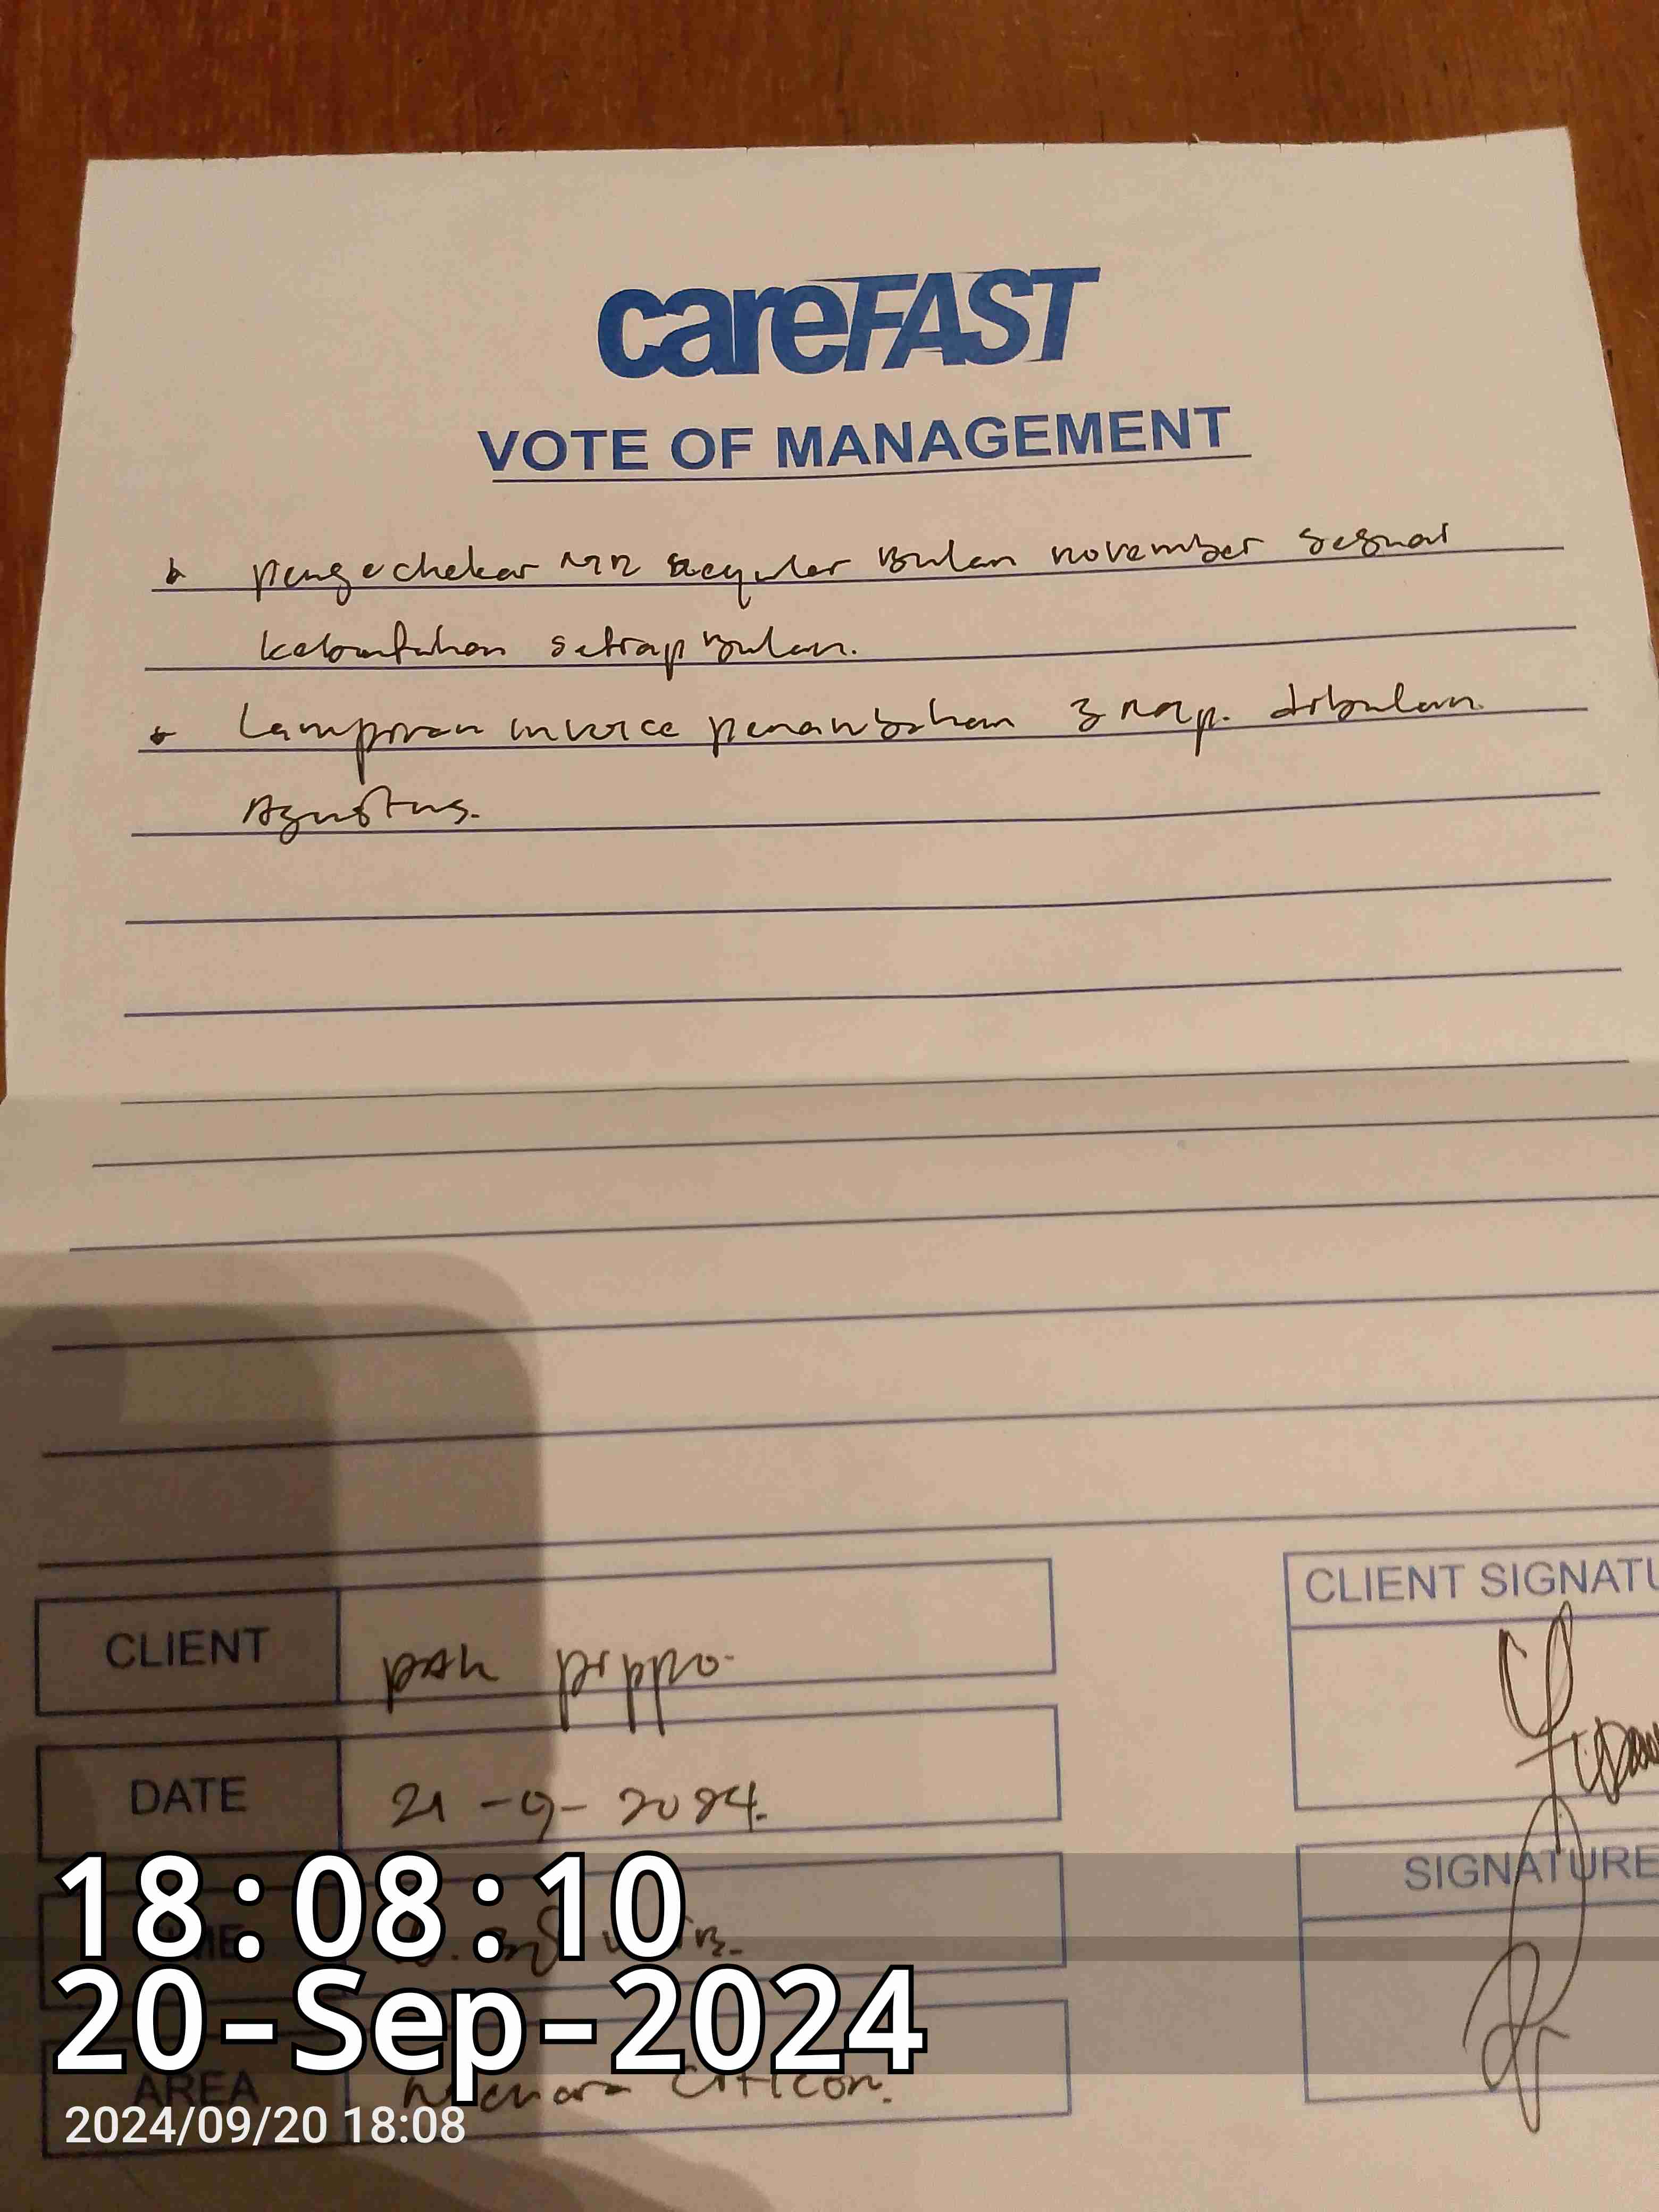 careFAST
VOTE OF MANAGEMENT
* Pengechekar MR Regular Bulan november sesuai
kebutuhan setiap bulan.
* Lampiran invoice penambahan 3 mp. dibulan
Agustus.
CLIENT
pak pippo.
CLIENT SIGNATU
DATE
21-9-2024.
SIGNATURE
18:08:10
20-Sep-2024
AREA
Menara Citicon.
2024/09/20 18:08